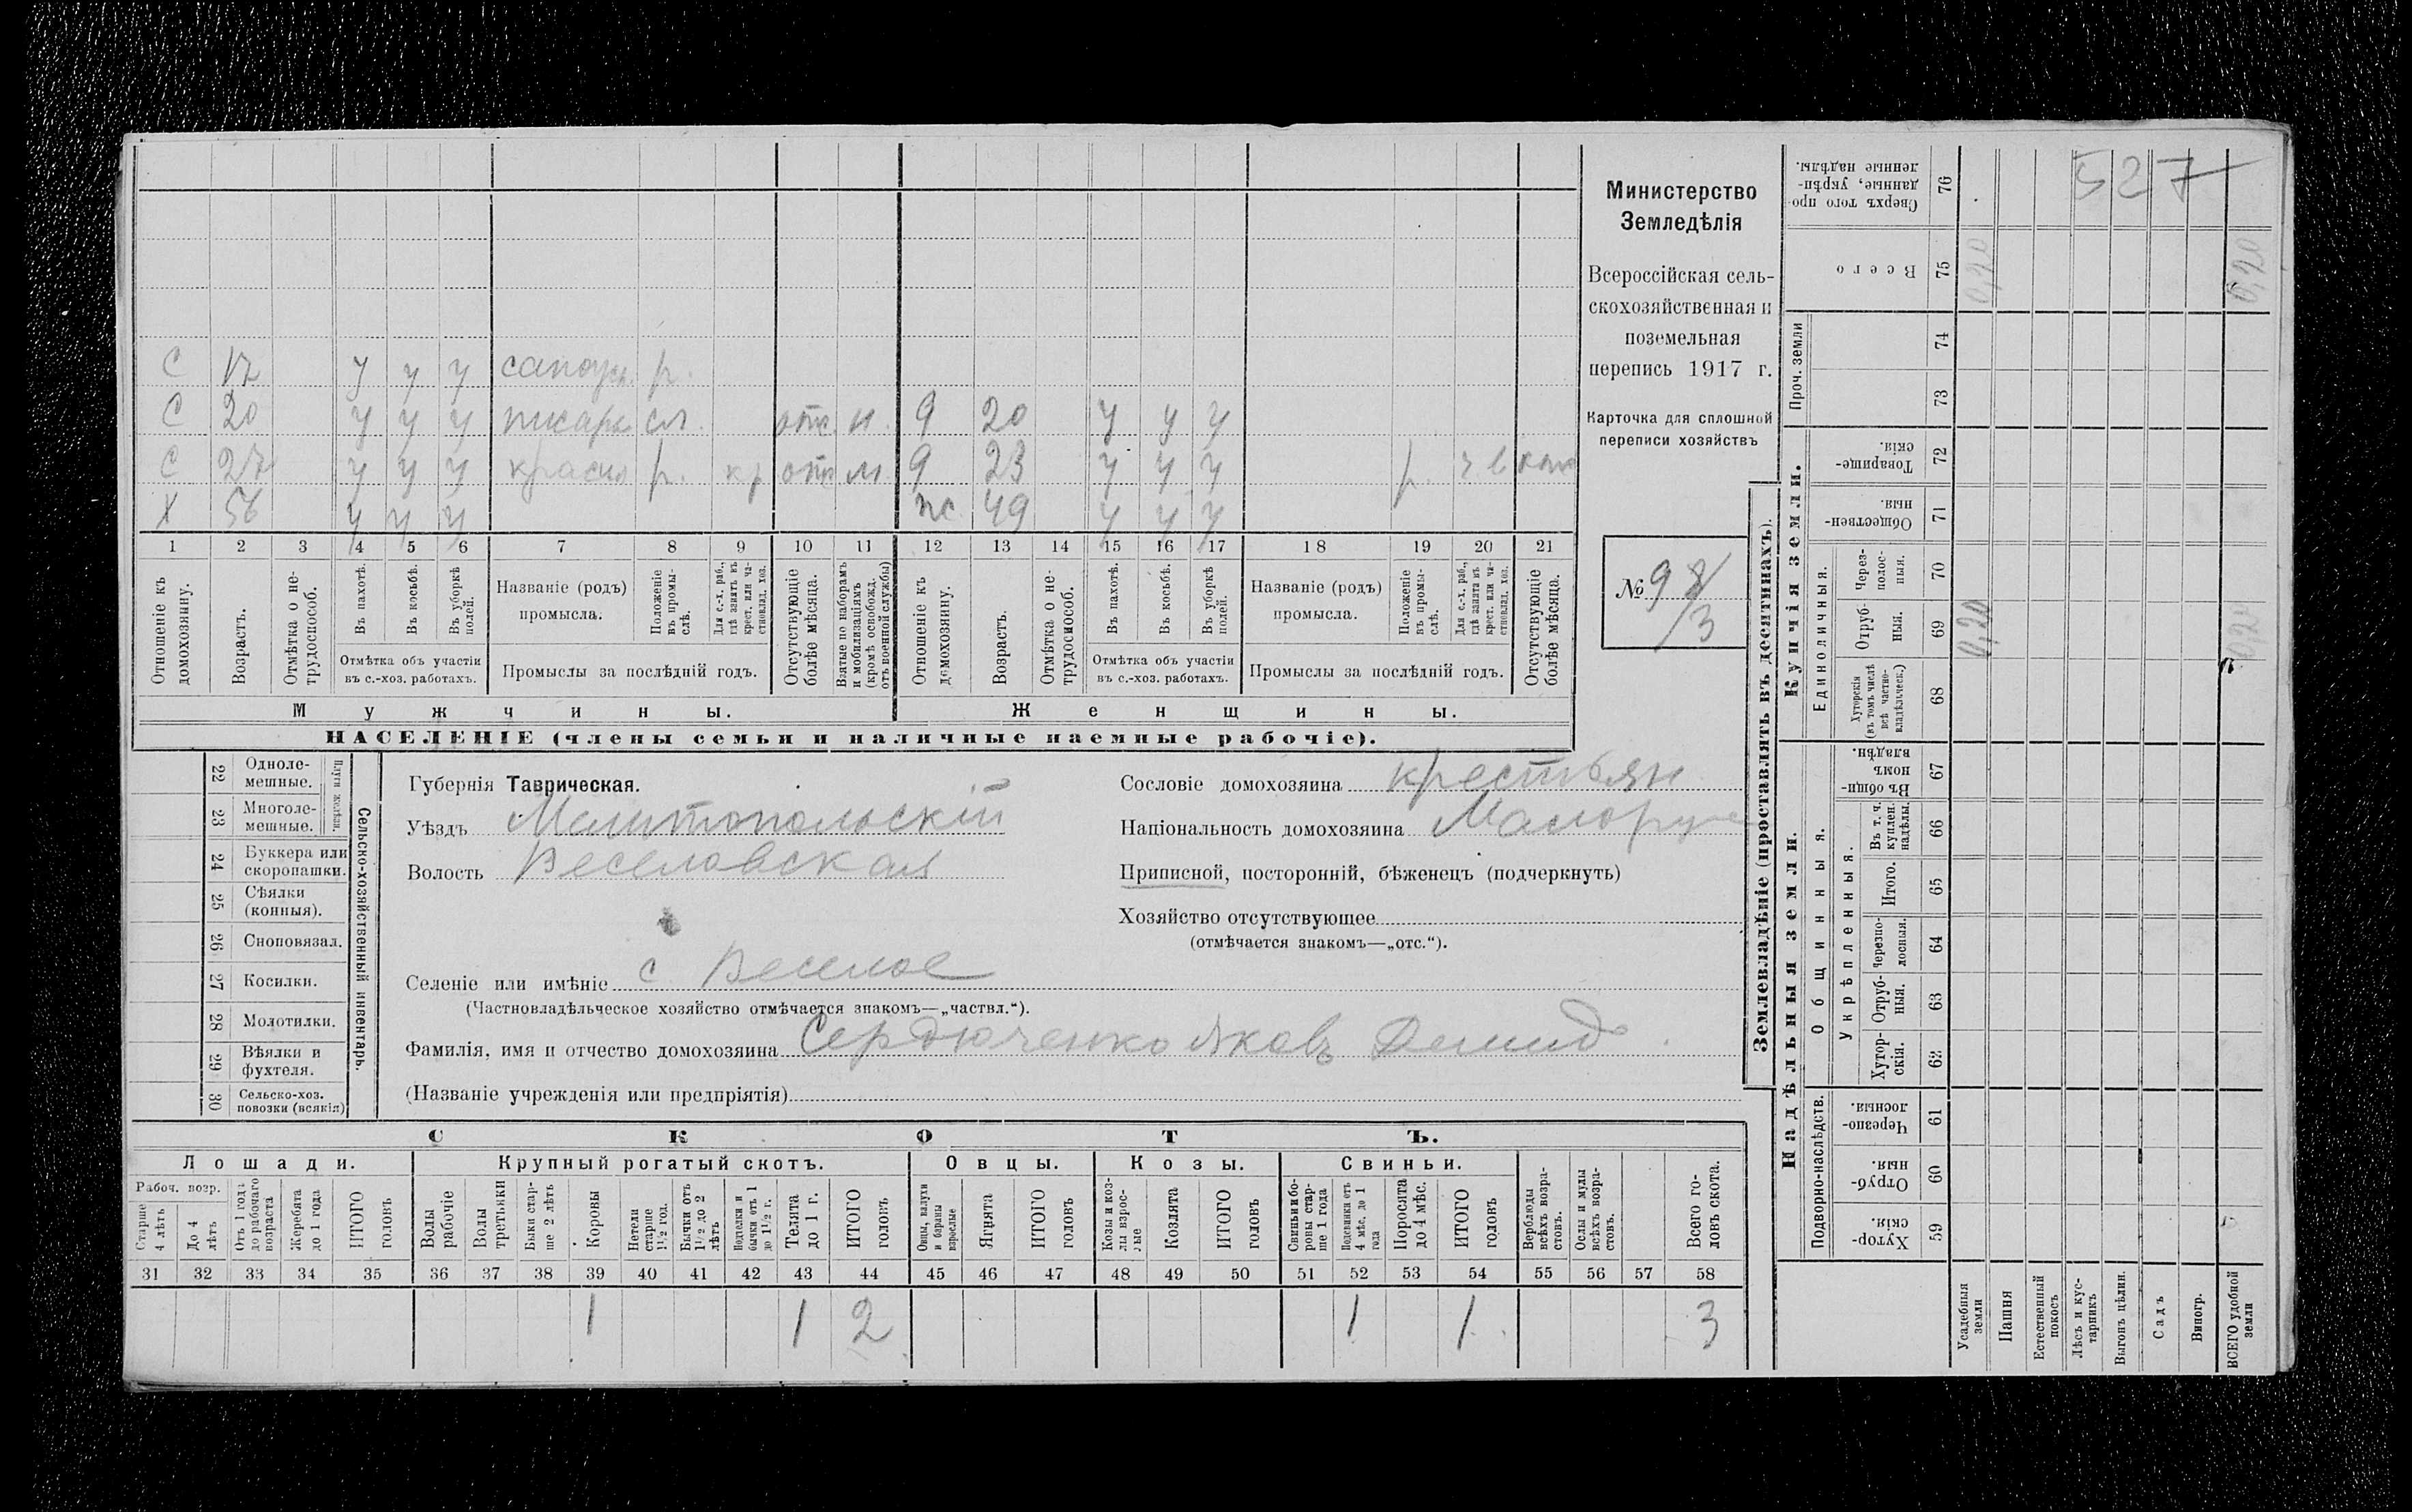 С 17 у у у р.
С 20 у у у писарь сл. отс. н. 9 20 у у у
С 27 у у у красил р. кр отс м. 9 23 у у у р.
Х 56 у у у жс. 49 у у у
1 2 3 4 5 6 7 8 9 10 11 12 13 14 15 16 17 18 19 20 21
Отношеніе къ домохозяину.
Возрастъ.
Отмѣтка о не-трудоспособ.
Въ пахотѣ.
Въ косьбѣ.
Въ уборкѣ полей.
Отмѣтка объ участіи
въ с.-хоз. работахъ.
Названіе (родъ)
промысла.
Положеніе въ промы-слѣ.
Для с.-х. раб., гдѣ занятъ въ крест. или ча-стновлад. хоз.
Промыслы за послѣдній годъ.
Отсутствующіе болѣе мѣсяца.
Взятые по наборамъ и мобилизаціямъ (кромѣ освобожд. отъ военной службы)
Отношеніе къ домохозяину.
Возрастъ.
Отмѣтка о не-трудоспособ.
Въ пахотѣ.
Въ косьбѣ.
Въ уборкѣ полей.
Отмѣтка объ участіи
въ с.-хоз. работахъ.
Названіе (родъ)
промысла.
Положеніе въ промы-слѣ.
Для с.-х. раб., гдѣ занята въ крест. или ча-стновлад. хоз.
Промыслы за послѣдній годъ.
Отсутствующіе болѣе мѣсяца.
Мужчины.
Женщины.
НАСЕЛЕНІЕ (члены семьи и наличные наемные рабочіе).
Министерство
Земледѣлія
Всероссійская сель-
скохозяйственная и
поземельная
перепись 1917 г.
Карточка для сплошной
переписи хозяйствъ
№ 98/3
22 Одноле-мешные.
23 Многоле-мешные.
Плуги желѣзн.
24 Буккера или скоропашки.
25 Сѣялки (конныя).
26 Сноповязал.
27 Косилки.
28 Молотилки.
29 Вѣялки и фухтеля.
30 Сельско-хоз. повозки (всякія)
Сельско-хозяйственный инвентарь.
Губернія Таврическая.
Уѣздъ Мелитопольскій
Волость Веселовская
Селеніе или имѣніе с Веселое
(Частновладѣльческое хозяйство отмѣчается знакомъ—„частвл.“).
Фамилія, имя и отчество домохозяина Сердюченко Яковъ Демид
(Названіе учрежденія или предпріятія)
Сословіе домохозяина крестьян
Національность домохозяина Малорус
Приписной, посторонній, бѣженецъ (подчеркнуть)
Хозяйство отсутствующее
(отмѣчается знакомъ—„отс.“).
СКОТЪ.
Лошади. Крупный рогатый скотъ. Овцы. Козы. Свиньи.
Рабоч. возр.
Старше 4 лѣтъ
До 4 лѣтъ
Отъ 1 года до рабочаго возраста
Жеребята до 1 года
ИТОГО головъ
Волы рабочіе
Волы третьяки
Быки стар-ше 2 лѣтъ
Коровы
Нетели старше 1½ год.
Бычки отъ 1½ до 2 лѣтъ
Подтелки и бычки, отъ 1 до 1½ г.
Телята до 1 г.
ИТОГО головъ
Овцы, валухи и бараны взрослые
Ягнята
ИТОГО головъ
Козы и коз-лы взрос-лые
Козлята
ИТОГО головъ
Свиньи и бо-ровы стар-ше 1 года
Подсвинки отъ 4 мѣс. до 1 года
Поросята до 4 мѣс.
ИТОГО головъ
Верблюды всѣхъ возра-стовъ.
Ослы и мулы всѣхъ возра-стовъ.
Всего го-ловъ скота.
31 32 33 34 35 36 37 38 39 40 41 42 43 44 45 46 47 48 49 50 51 52 53 54 55 56 57 58
1 1 2 1 1 3
Землевладѣніе (проставлять въ десятинахъ).
Надѣльныя земли.
Купчія земли.
Проч. земли
Подворно-наслѣдств.
Общинныя.
Укрѣпленныя.
Единоличныя.
Сверхъ того про-данные, укрѣп-ленные надѣлы. 76
Всего 75
74
73
Товарище-скія. 72
Обществен-ныя. 71
Через-полос-ныя. 70
Отруб-ныя. 69
Хуторскія (въ томъ числѣ всѣ частно-владѣльческ.) 68
Въ общи-номъ владѣн. 67
Въ т. ч. куплен. надѣлы. 66
Итого. 65
Черезпо-лосныя. 64
Отруб-ныя. 63
Хутор-скія. 62
Черезпо-лосныя. 61
Отруб-ныя. 60
Хутор-скія. 59
Усадебныя земли
Пашня
Естественный покосъ
Лѣсъ и кус-тарникъ
Выгонъ цѣлин.
Садъ
Виногр.
ВСЕГО удобной земли
527
0,20 0,20
0,20 0,20